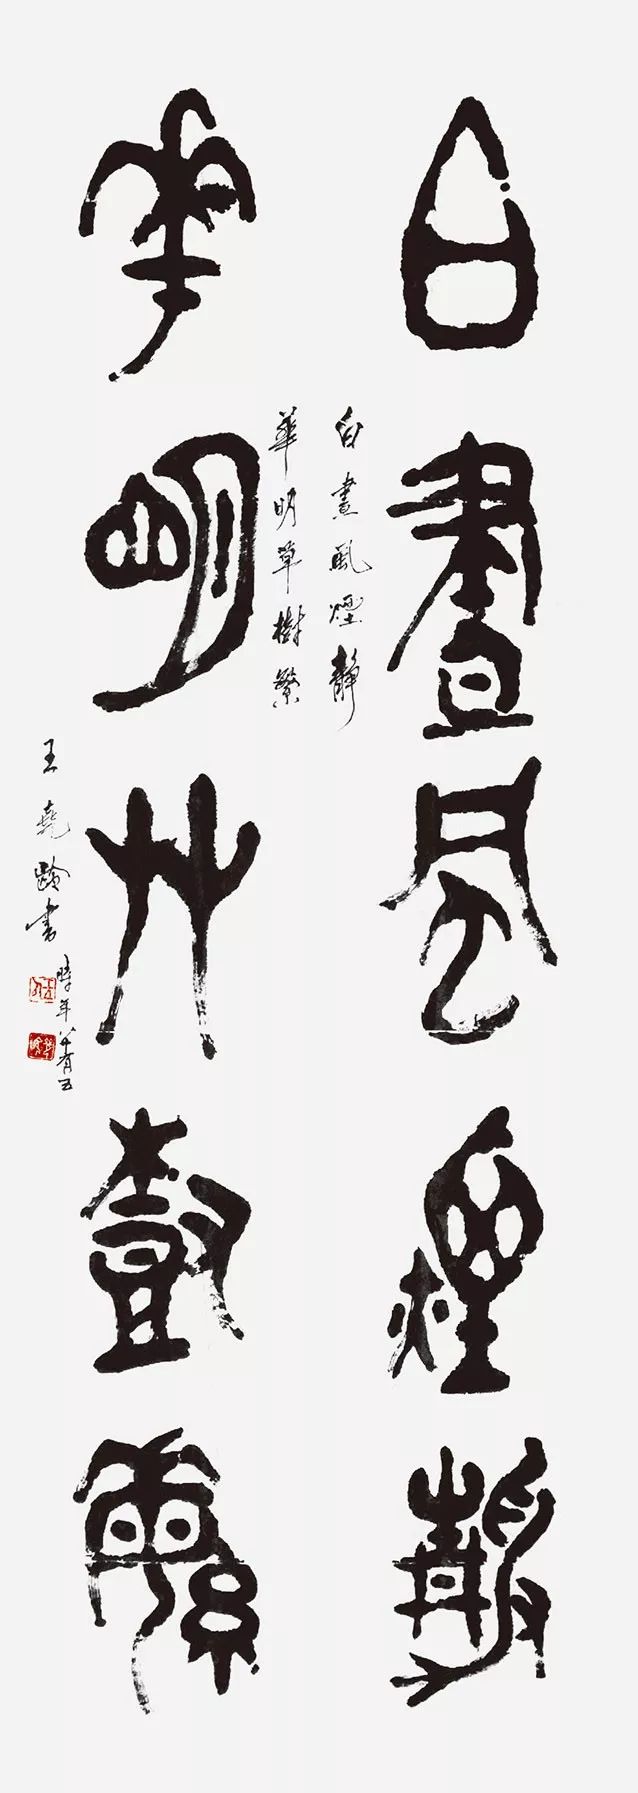 白晝風煙靜
華明艸樹緐
白晝風煙靜
華明草樹繁
王堯齡書
時年八十有五